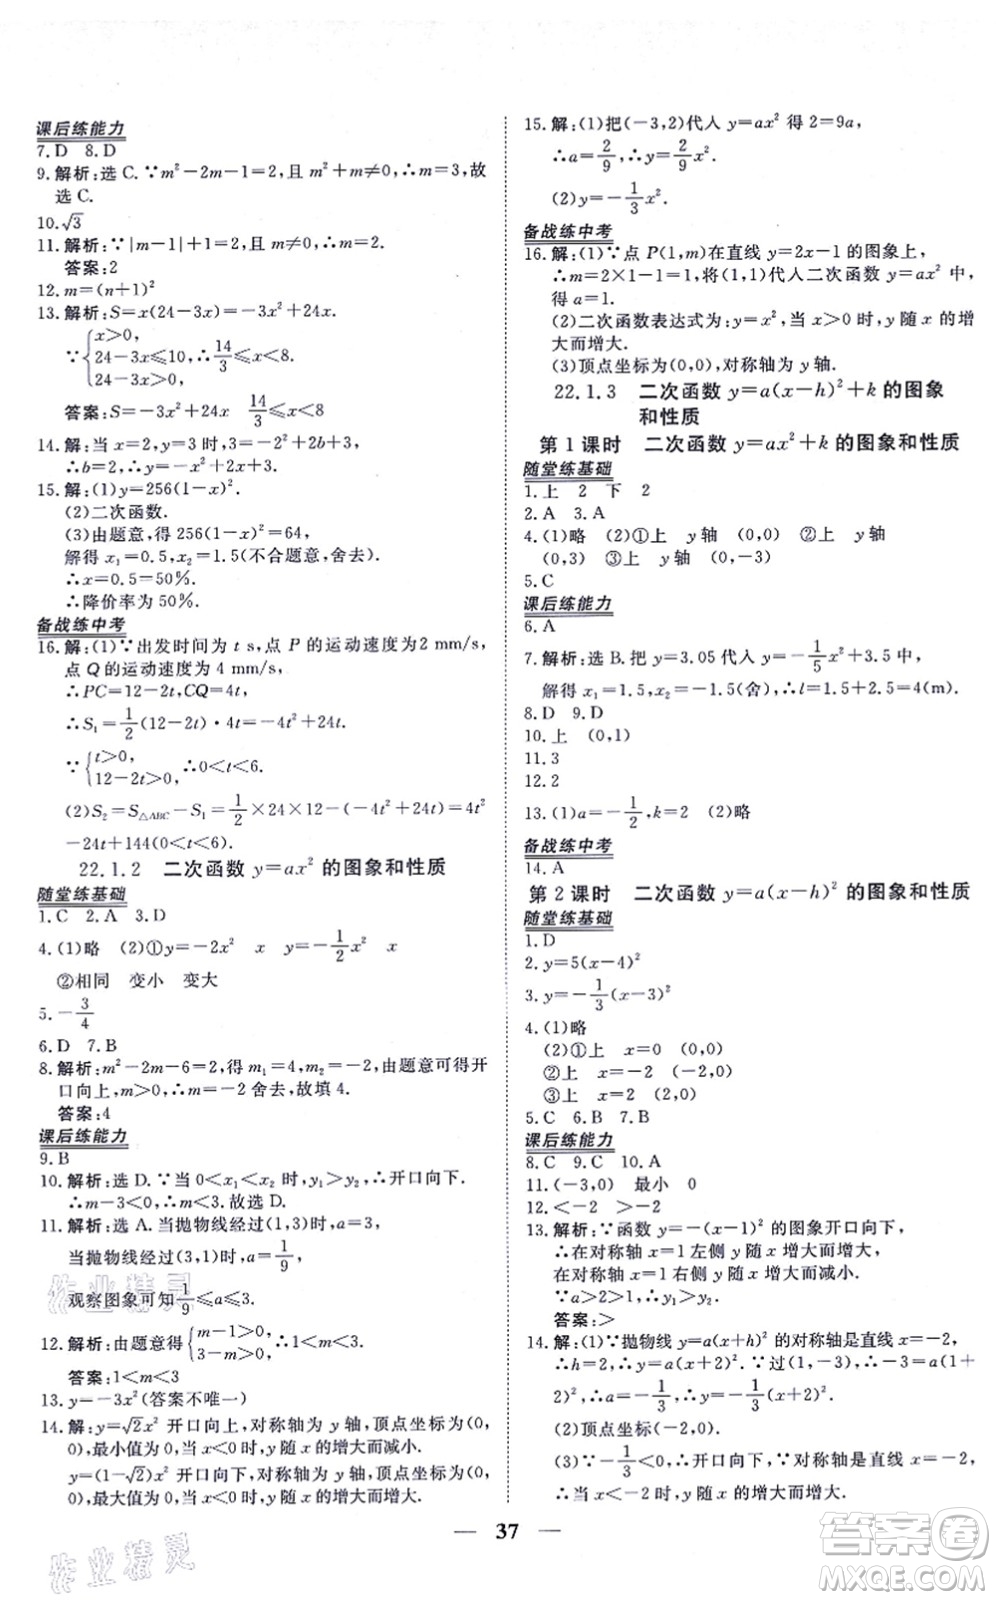 课后练能力
7. D　8. D
9. 解析:选 C. ∵m²－2m－1＝2,且 m²＋m≠0,∴m＝3,故
选 C.
10. √3
11. 解析:∵|m－1|＋1＝2,且 m≠0,∴m＝2.
答案:2
12. m＝(n＋1)²
13. 解析:S＝x(24－3x)＝－3x²＋24x.
∵{x＞0, 24－3x≤10, 24－3x＞0, ∴14/3≤x＜8.
答案:S＝－3x²＋24x　14/3≤x＜8
14. 解:当 x＝2,y＝3 时,3＝－2²＋2b＋3,
∴b＝2,∴y＝－x²＋2x＋3.
15. 解:(1)y＝256(1－x)².
(2)二次函数.
(3)由题意,得 256(1－x)²＝64,
解得 x₁＝0.5,x₂＝1.5(不合题意,舍去).
∴x＝0.5＝50%.
∴降价率为 50%.
备战练中考
16. 解:(1)∵出发时间为 t s,点 P 的运动速度为2 mm/s,
点 Q 的运动速度为 4 mm/s,
∴PC＝12－2t,CQ＝4t,
∴S₁＝1/2(12－2t)·4t＝－4t²＋24t.
∵{t＞0, 12－2t＞0, ∴0＜t＜6.
(2)S₂＝S△ABC－S₁＝1/2×24×12－(－4t²＋24t)＝4t²
－24t＋144(0＜t＜6).
22.1.2　二次函数 y＝ax² 的图象和性质
随堂练基础
1. C　2. A　3. D
4. (1)略　(2)①y＝－2x²　x　y＝－1/2x²　x
②相同　变小　变大
5. －3/4
6. D　7. B
8. 解析:m²－2m－6＝2,得 m₁＝4,m₂＝－2,由题意可得开
口向上,m＞0,∴m＝－2 舍去,故填 4.
答案:4
课后练能力
9. B
10. 解析:选 D. ∵当 0＜x₁＜x₂ 时,y₁＞y₂,∴开口向下.
∴m－3＜0,∴m＜3.故选 D.
11. 解析:选 A.当抛物线经过(1,3)时,a＝3,
当抛物线经过(3,1)时,a＝1/9,
观察图象可知1/9≤a≤3.
12. 解析:由题意得{m－1＞0, 3－m＞0, ∴1＜m＜3.
答案:1＜m＜3
13. y＝－3x²(答案不唯一)
14. 解:y＝√2x² 开口向上,对称轴为 y 轴,顶点坐标为(0,
0),最小值为 0,当 x＜0 时,y 随 x 的增大而减小.
y＝(1－√2)x² 开口向下,对称轴为 y 轴,顶点坐标为(0,
0),最大值为 0,当 x＜0 时,y 随 x 的增大而增大.
15. 解:(1)把(－3,2)代入 y＝ax² 得 2＝9a,
∴a＝2/9,∴y＝2/9x².
(2)y＝－1/3x².
备战练中考
16. 解:(1)∵点 P(1,m)在直线 y＝2x－1 的图象上,
∴m＝2×1－1＝1,将(1,1)代入二次函数 y＝ax² 中,
得 a＝1.
(2)二次函数表达式为:y＝x²,当 x＞0 时,y 随 x 的增
大而增大.
(3)顶点坐标为(0,0),对称轴为 y 轴.
22.1.3　二次函数 y＝a(x－h)²＋k 的图象
和性质
第 1 课时　二次函数 y＝ax²＋k 的图象和性质
随堂练基础
1. 上　2　下　2
2. A　3. A
4. (1)略　(2)①上　y 轴　(0,0)　②上　y 轴
(0,3)　③上　y 轴　(0,－3)
5. C
课后练能力
6. A
7. 解析:选 B.把 y＝3.05代入 y＝－1/5x²＋3.5中,
解得 x₁＝1.5,x₂＝－1.5(舍),∴l＝1.5＋2.5＝4(m).
8. D　9. D
10. 上　(0,1)
11. 3
12. 2
13. (1)a＝－1/2,k＝2　(2)略
备战练中考
14. A
第 2 课时　二次函数 y＝a(x－h)² 的图象和性质
随堂练基础
1. D
2. y＝5(x－4)²
3. y＝－1/3(x－3)²
4. (1)略
(2)①上　x＝0　(0,0)
②上　x＝－2　(－2,0)
③上　x＝2　(2,0)
5. C　6. B　7. B
课后练能力
8. C　9. C　10. A
11. (－3,0)　最小　0
12. ＜－2　＞－2
13. 解析:∵函数 y＝－(x－1)² 的图象开口向下,
∴在对称轴 x＝1 左侧 y 随 x 增大而增大,
在对称轴 x＝1 右侧 y 随 x 增大而减小.
∵a＞2＞1,∴y₁＞y₂.
答案:＞
14. 解:(1)∵抛物线 y＝a(x＋h)² 的对称轴是直线 x＝－2,
∴h＝2,∴y＝a(x＋2)². ∵过(1,－3),∴－3＝a(1＋
2)²,∴a＝－1/3,∴y＝－1/3(x＋2)².
(2)顶点坐标(－2,0).
(3)∵－1/3＜0,∴开口向下,
∴当 x＜－2 时,y 随 x 的增大而增大.
37
作业精灵
作业精灵
答案圈
MXQE.COM